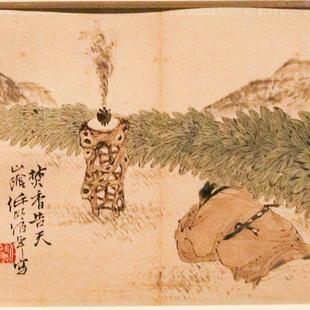 焚香告天
山陰任頤伯年寫